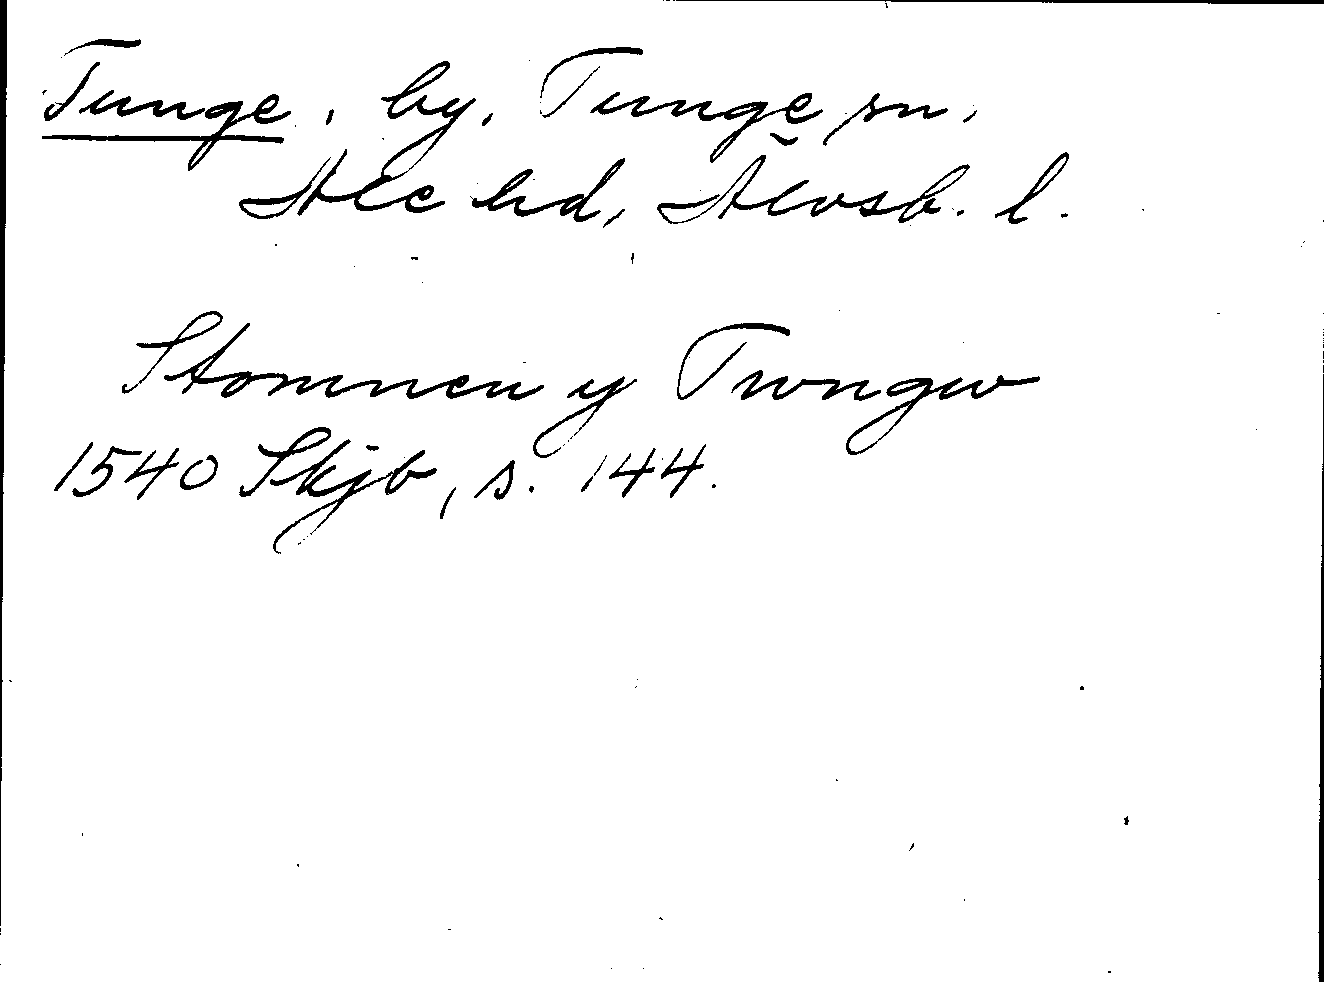 Tunge, by, Tunge sn,
Ale hd, Älvsb. l.
Stomnen y Twngw
1540 Skjb, s. 144.